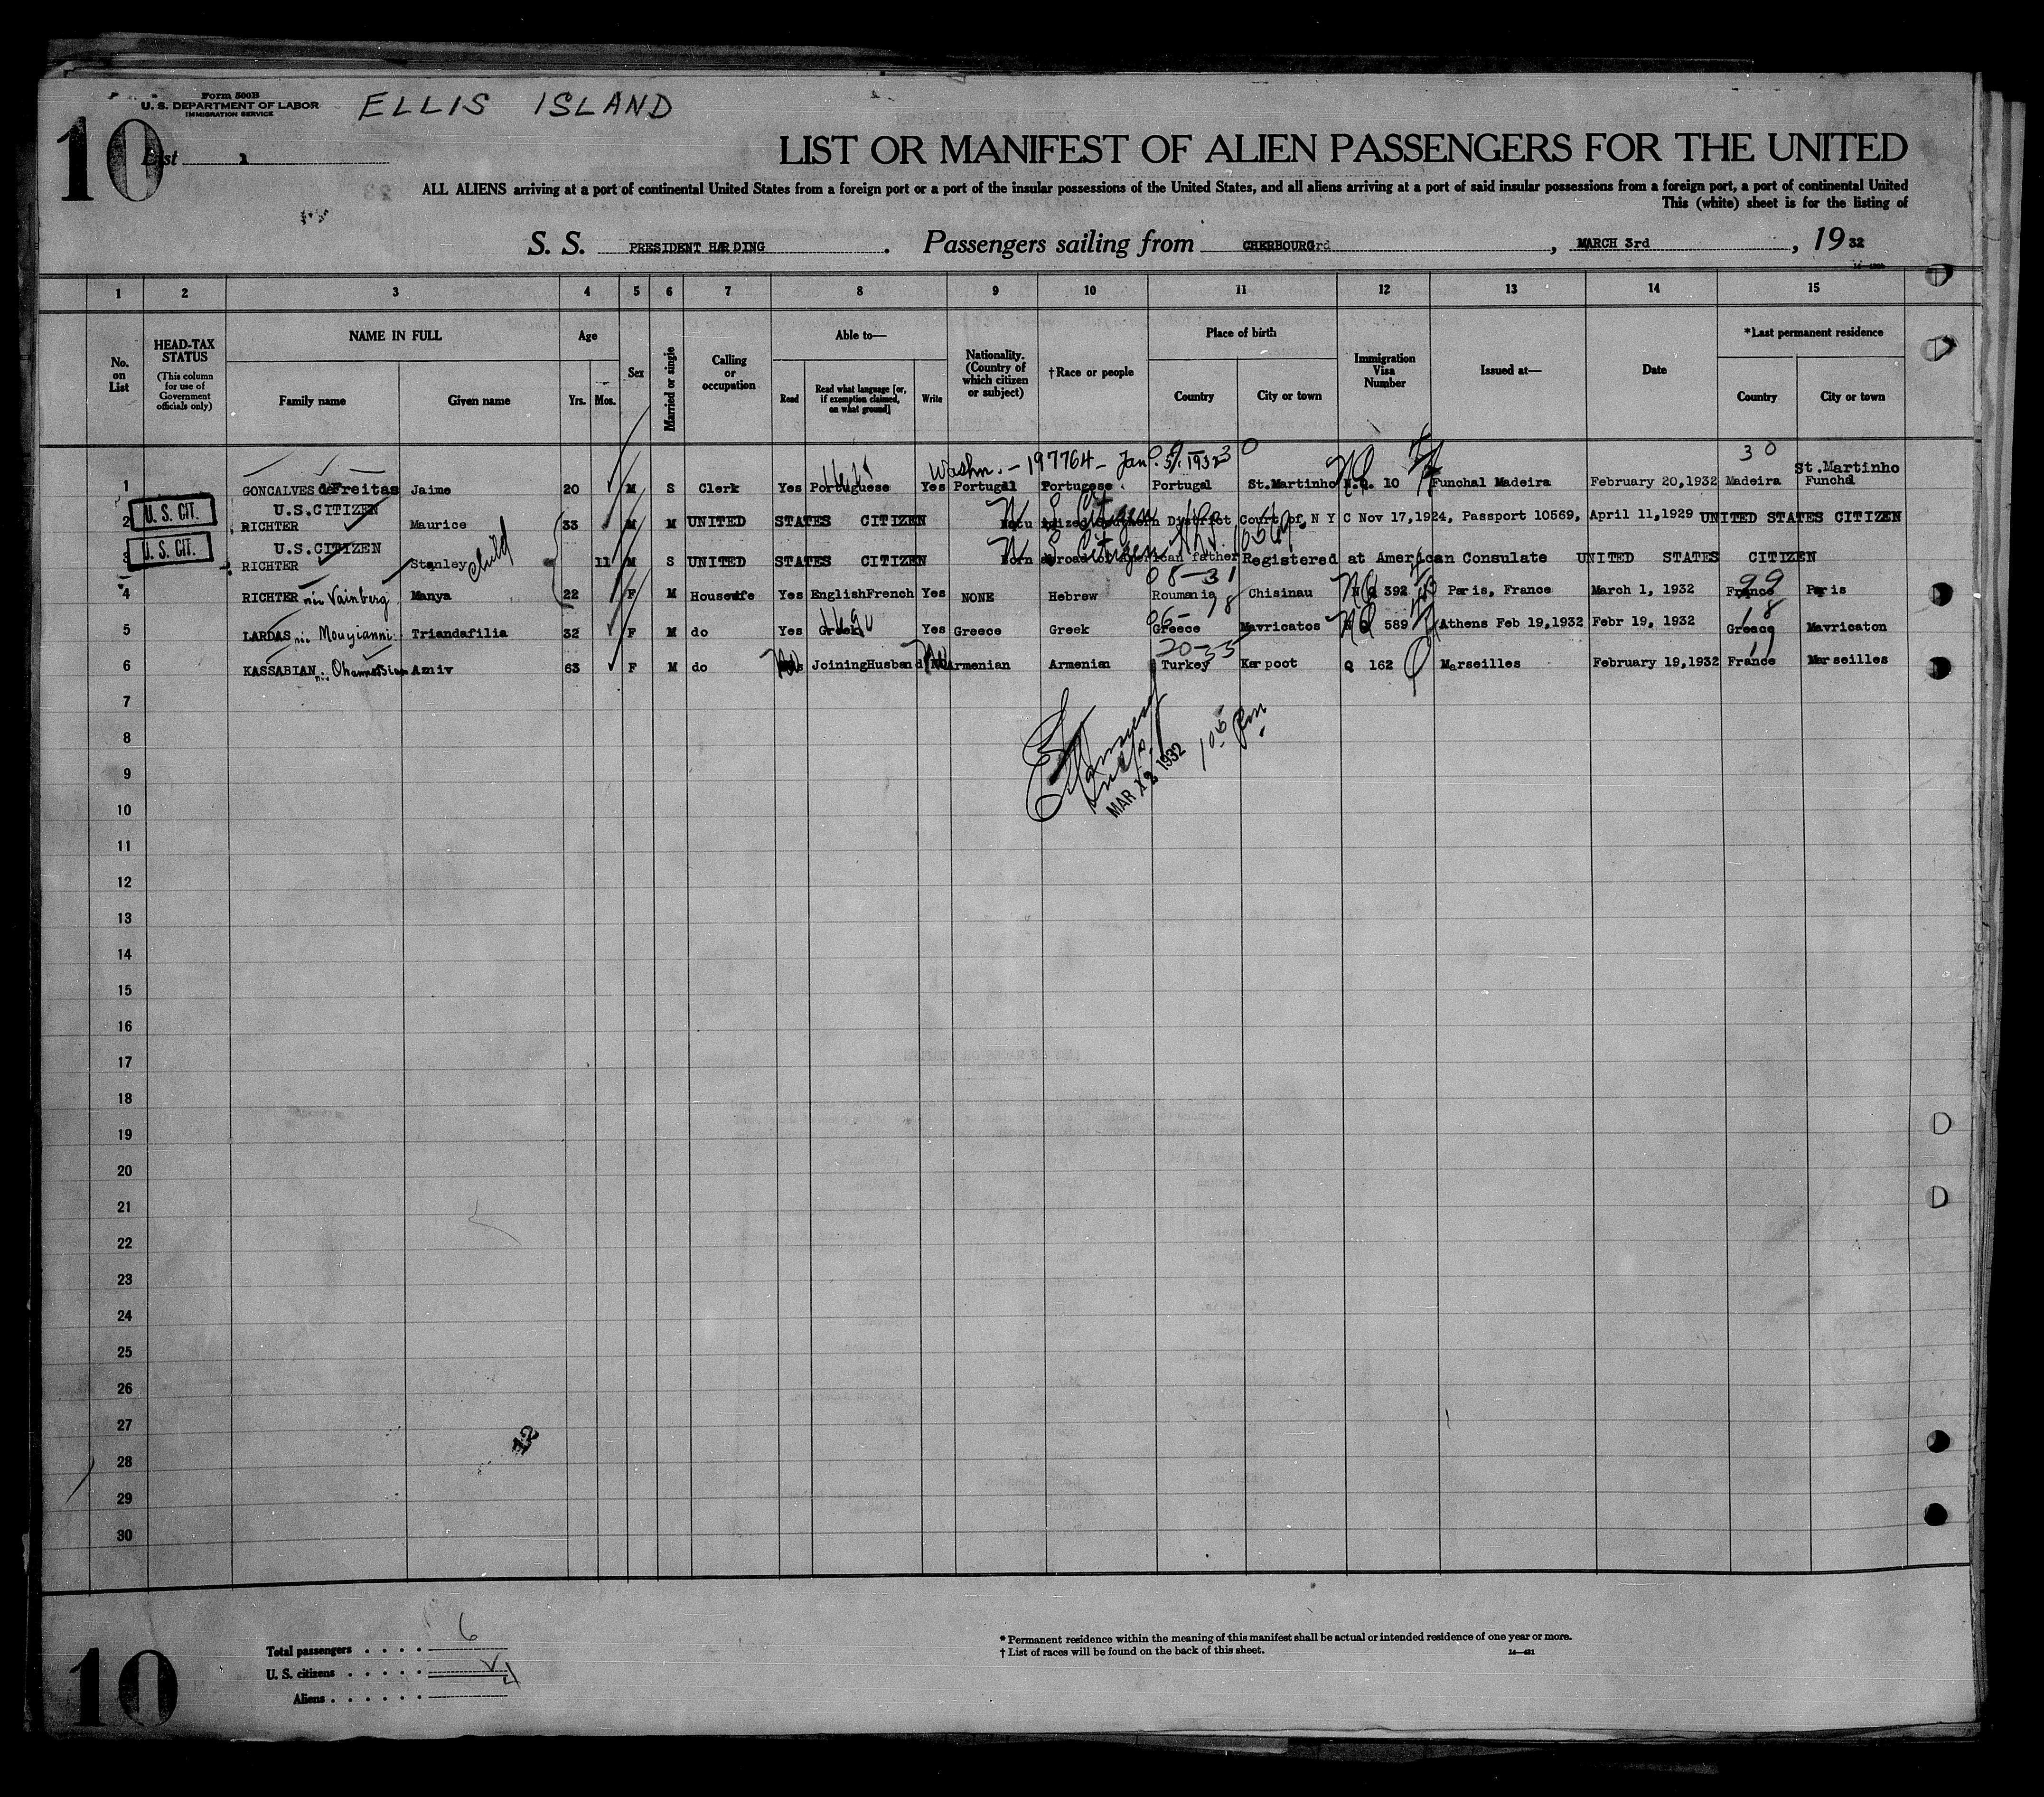 Form 500B
U. S. DEPARTMENT OF LABOR
IMMIGRATION SERVICE
ELLIS ISLAND
10
List 1
LIST OR MANIFEST OF ALIEN PASSENGERS FOR THE UNITED
ALL ALIENS arriving at a port of continental United States from a foreign port or a port of the insular possessions of the United States, and all aliens arriving at a port of said insular possessions from a foreign port, a port of continental United
This (white) sheet is for the listing of
S. S. PRESIDENT HARDING. Passengers sailing from CHERBOURG rd, MARCH 3rd, 19 32
1 2 3 4 5 6 7 8 9 10 11 12 13 14 15
No. on List
HEAD-TAX STATUS (This column for use of Government officials only)
NAME IN FULL
Family name Given name
Age
Yrs. Mos.
Sex
Married or single
Calling or occupation
Able to—
Read Read what language [or, if exemption claimed, on what ground] Write
Nationality. (Country of which citizen or subject)
†Race or people
Place of birth
Country City or town
Immigration Visa Number
Issued at—
Date
*Last permanent residence
Country City or town
Washn. - 197764 - Jan. 30
1 GONCALVES de Freitas Jaime 20 M S Clerk Yes Portuguese Yes Portugal Portugese Portugal St.Martinho N.Q. 10 Funchal Madeira February 20,1932 Madeira St.Martinho Funchal
U. S. CIT.
U.S.CITIZEN
2 RICHTER Maurice 33 M M UNITED STATES CITIZEN U S Citizen Southern District Court of N Y C Nov 17,1924, Passport 10569, April 11,1929 UNITED STATES CITIZEN
U. S. CIT.
U.S.CITIZEN
3 RICHTER Stanley child 11 M S UNITED STATES CITIZEN U S Citizen Born abroad of American father Registered at American Consulate UNITED STATES CITIZEN
4 RICHTER née Vainberg Manya 22 F M Housewife Yes EnglishFrench Yes NONE Hebrew Roumania Chisinau NQ 392 Paris, France March 1, 1932 France Paris
5 LARDAS Mougianni Triandafilia 32 F M do Yes Greek Yes Greece Greek Greece Mavricatos 589 Athens Feb 19,1932 Febr 19, 1932 Greece Mavricaton
6 KASSABIAN Ohannessian Azniv 63 F M do No JoiningHusband No Armenian Armenian Turkey Karpoot Q 162 Marseilles February 19,1932 France Marseilles
MAR 12 1932
7
8
9
10
11
12
13
14
15
16
17
18
19
20
21
22
23
24
25
26
27
28
29
30
Total passengers . . . . 6
U. S. citizens . . . . .
Aliens . . . . . . 4
* Permanent residence within the meaning of this manifest shall be actual or intended residence of one year or more.
† List of races will be found on the back of this sheet.
10